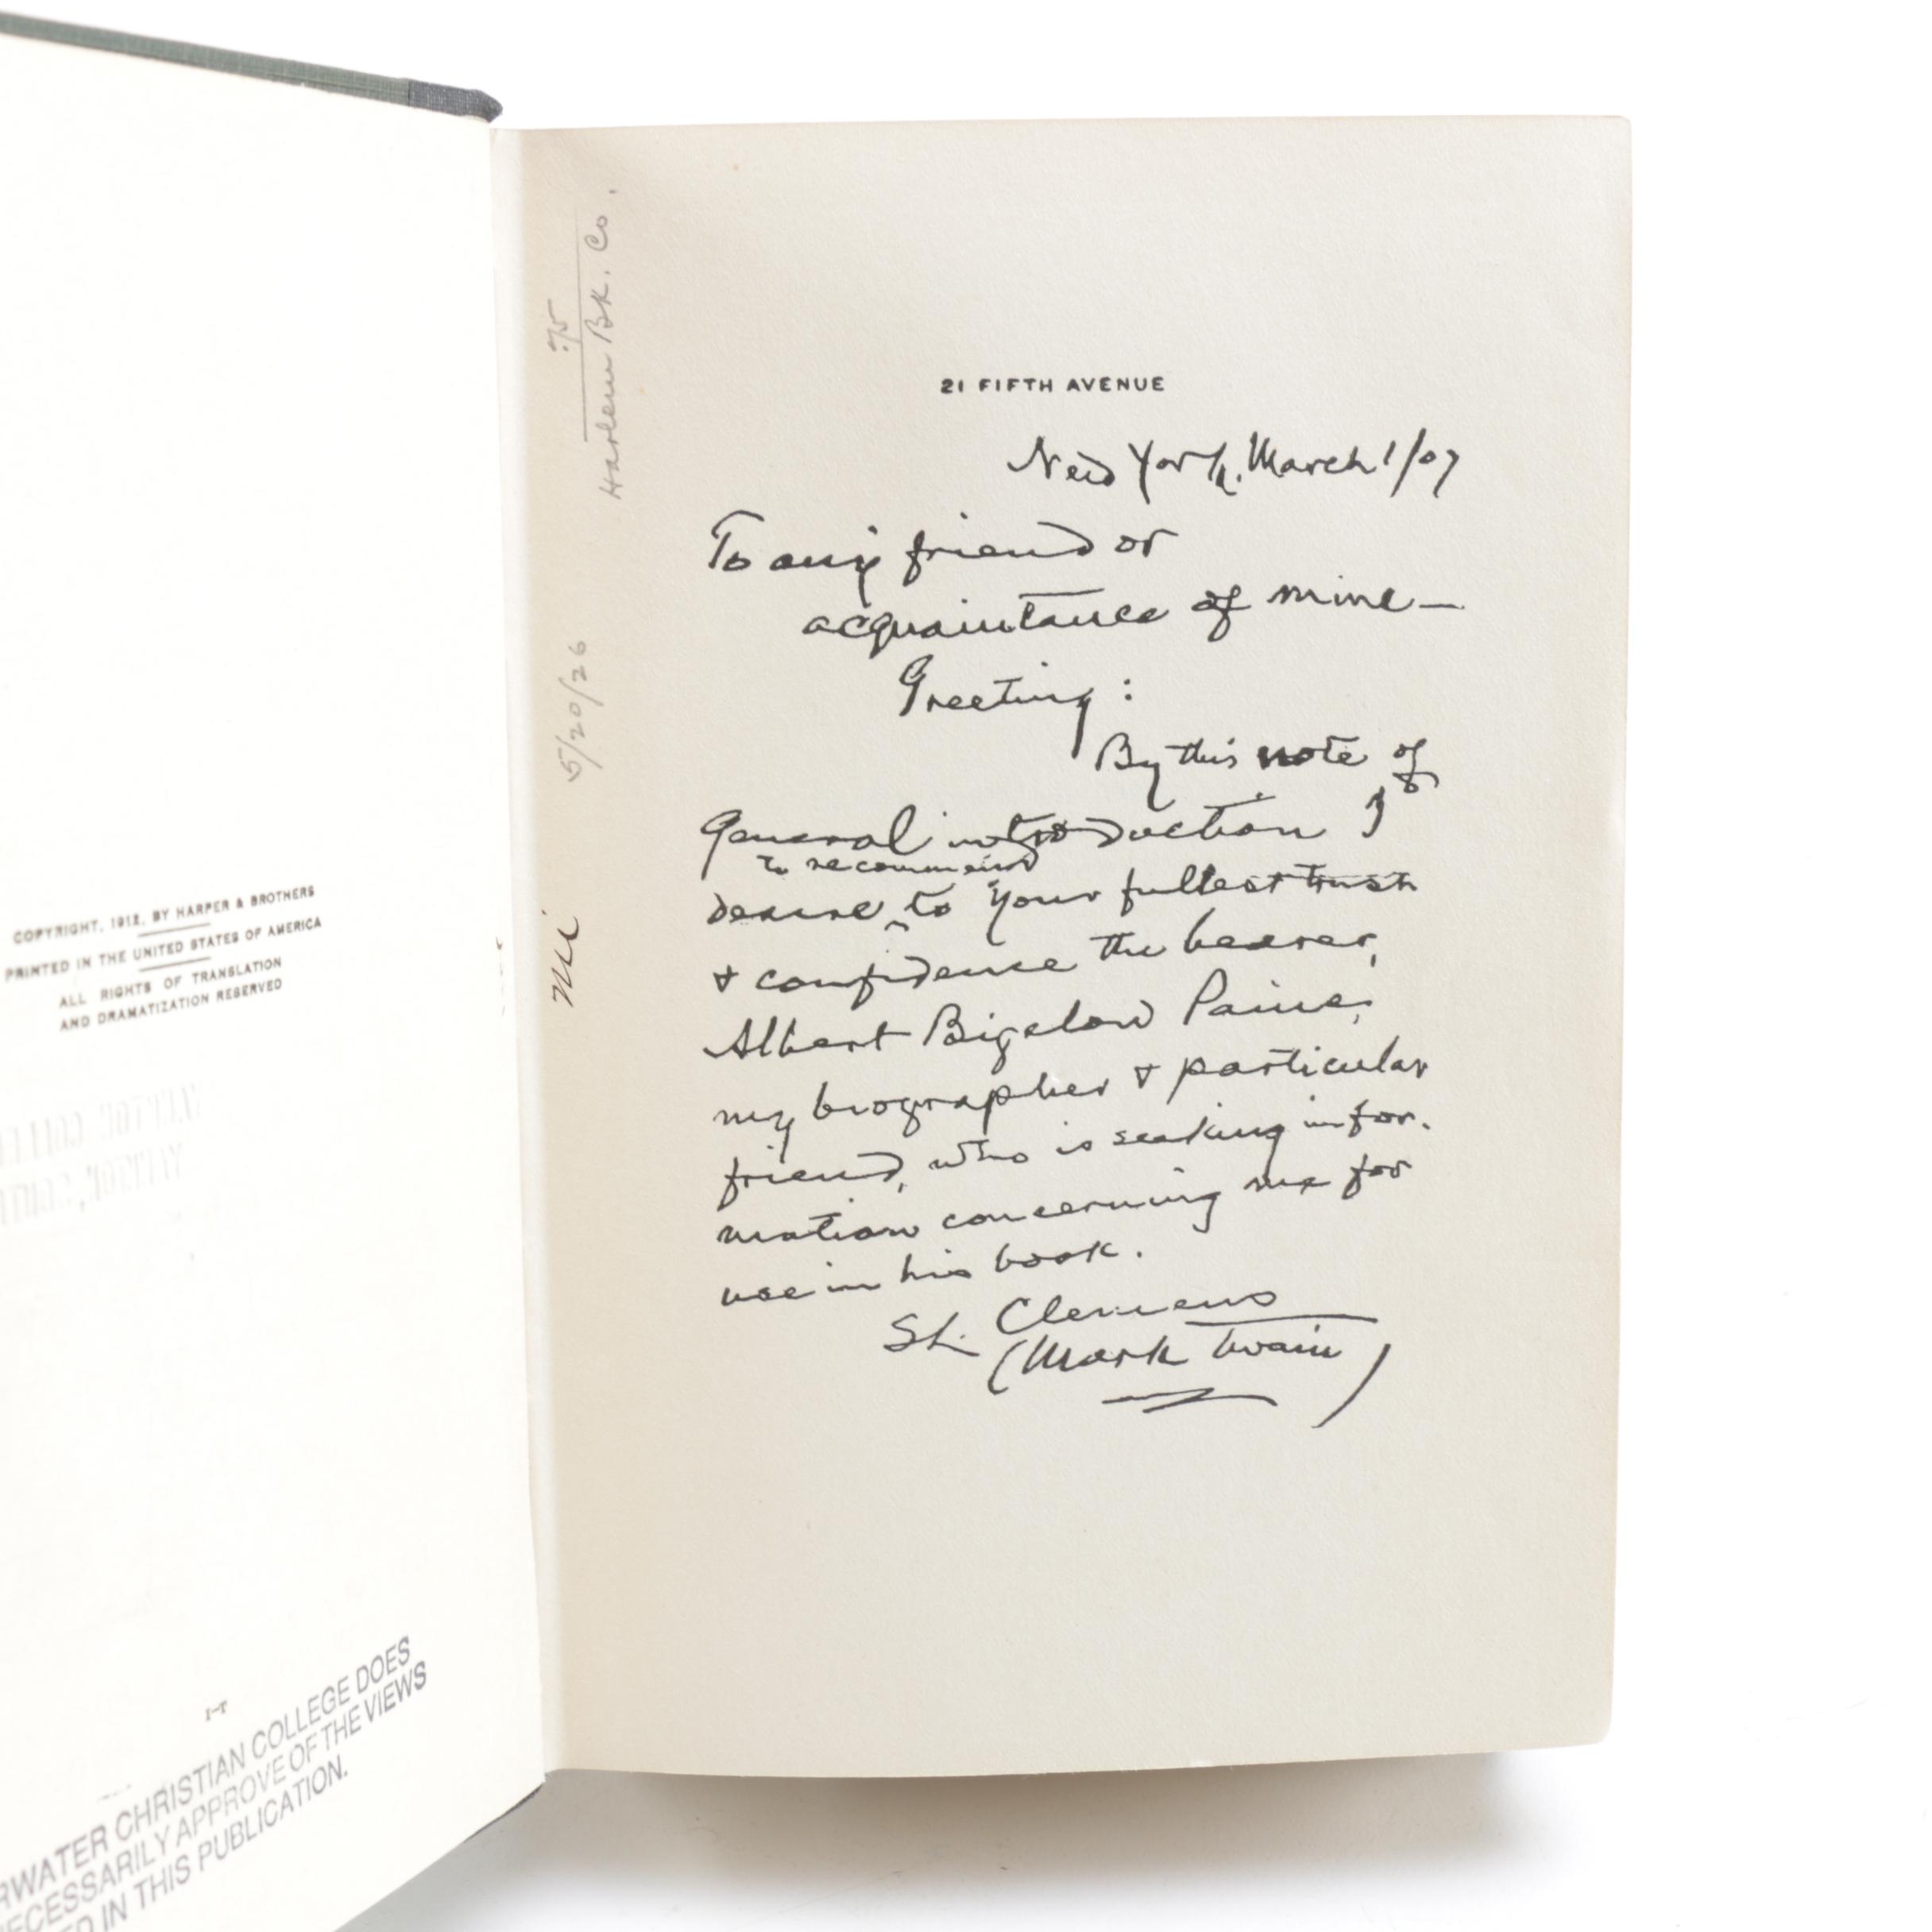 COPYRIGHT, 1912, BY HARPER & BROTHERS
PRINTED IN THE UNITED STATES OF AMERICA
ALL RIGHTS OF TRANSLATION
AND DRAMATIZATION RESERVED
I-T
RWATER CHRISTIAN COLLEGE DOES
ECESSARILY APPROVE OF THE VIEWS
ED IN THIS PUBLICATION.
.75
Harlem Bk. Co.
5/20/26
21 FIFTH AVENUE
New York, March 1/07
To any friend or
acquaintance of mine—
Greeting:
By this note of
General introduction I
to recommend
desire to your fullest trust
& confidence the bearer,
Albert Bigelow Paine,
my biographer & particular
friend, who is seeking infor-
mation concerning me for
use in his book.
SL. Clemens
(Mark Twain)